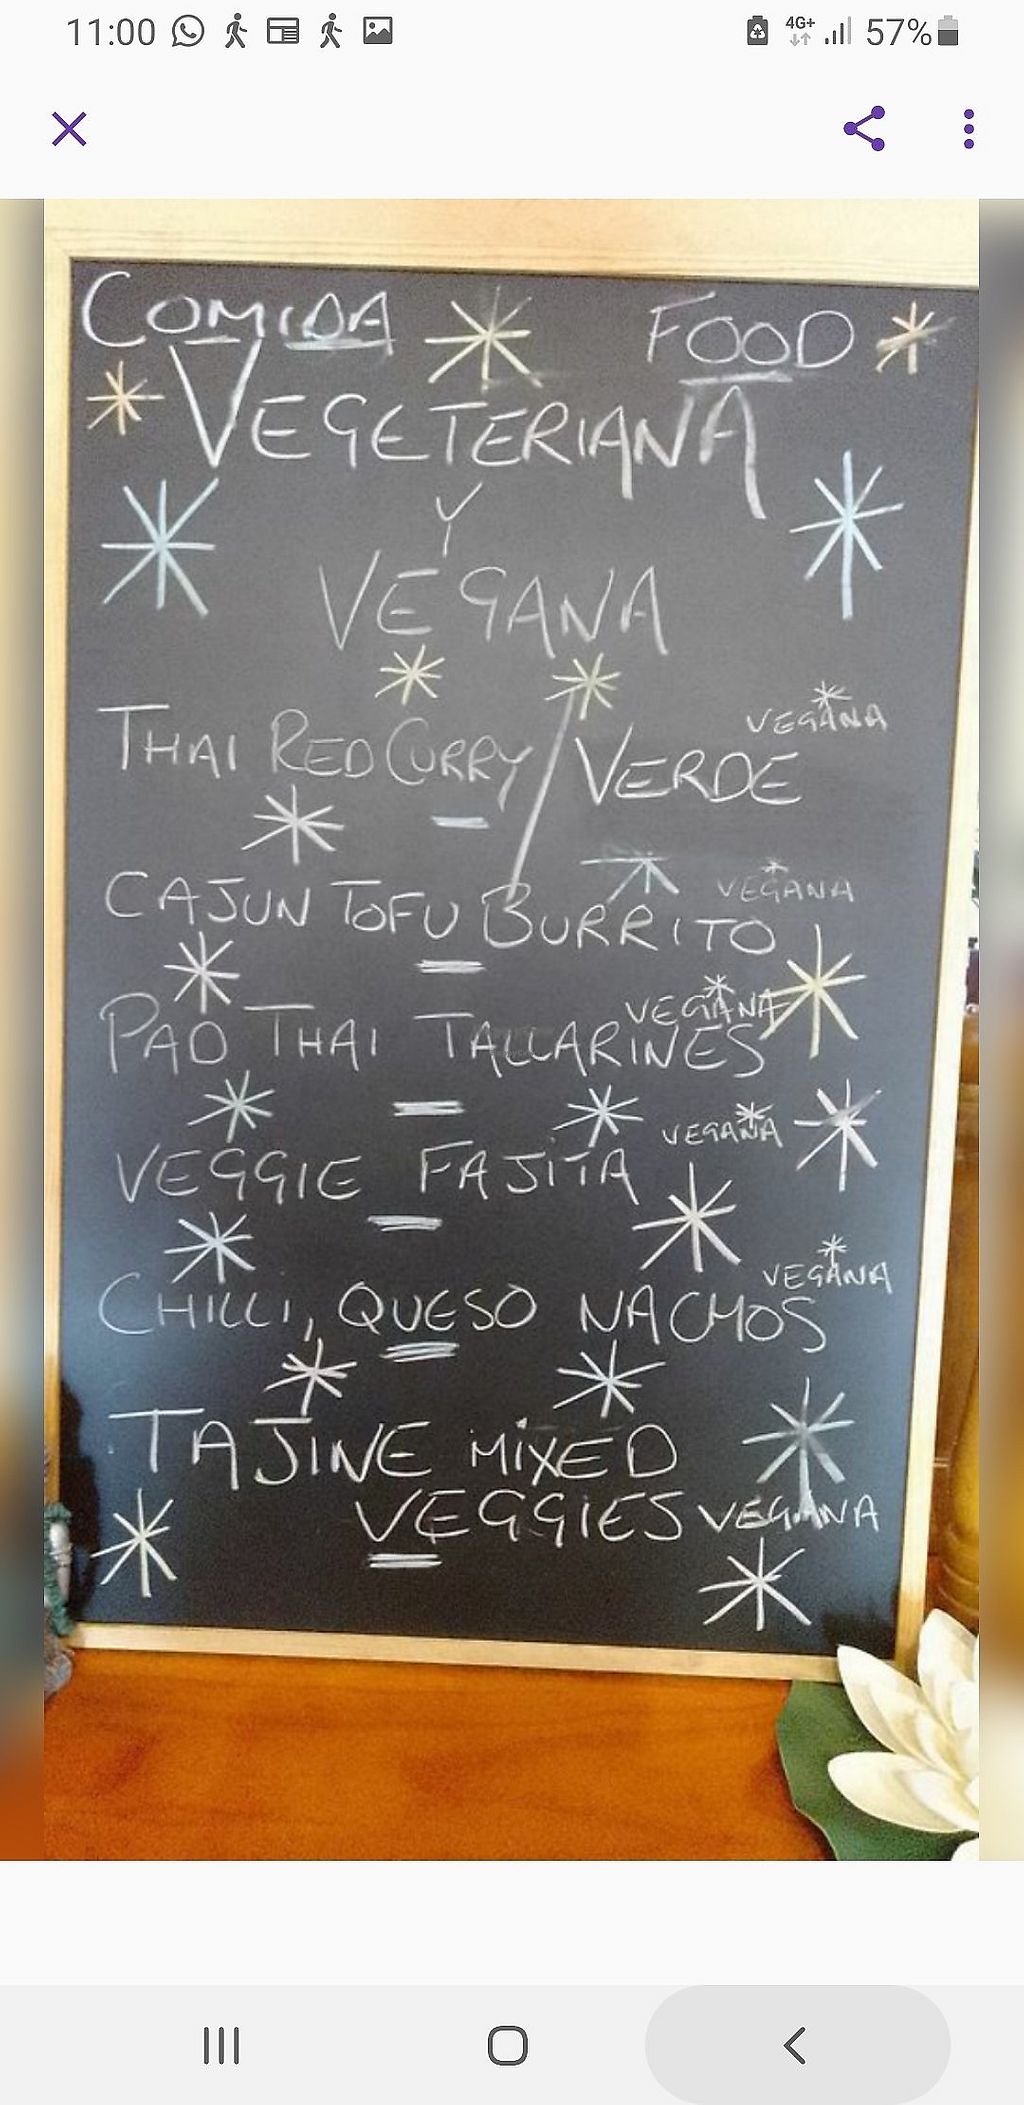 11:00 4G+ 57%
COMIDA FOOD
VEGETERIANA
Y
VEGANA
THAI RED CURRY / VERDE VEGANA
CAJUN TOFU BURRITO VEGANA
PAD THAI TALLARINES VEGANA
VEGGIE FAJITA VEGANA
CHILLI, QUESO NACHOS VEGANA
TAJINE MIXED
VEGGIES VEGANA